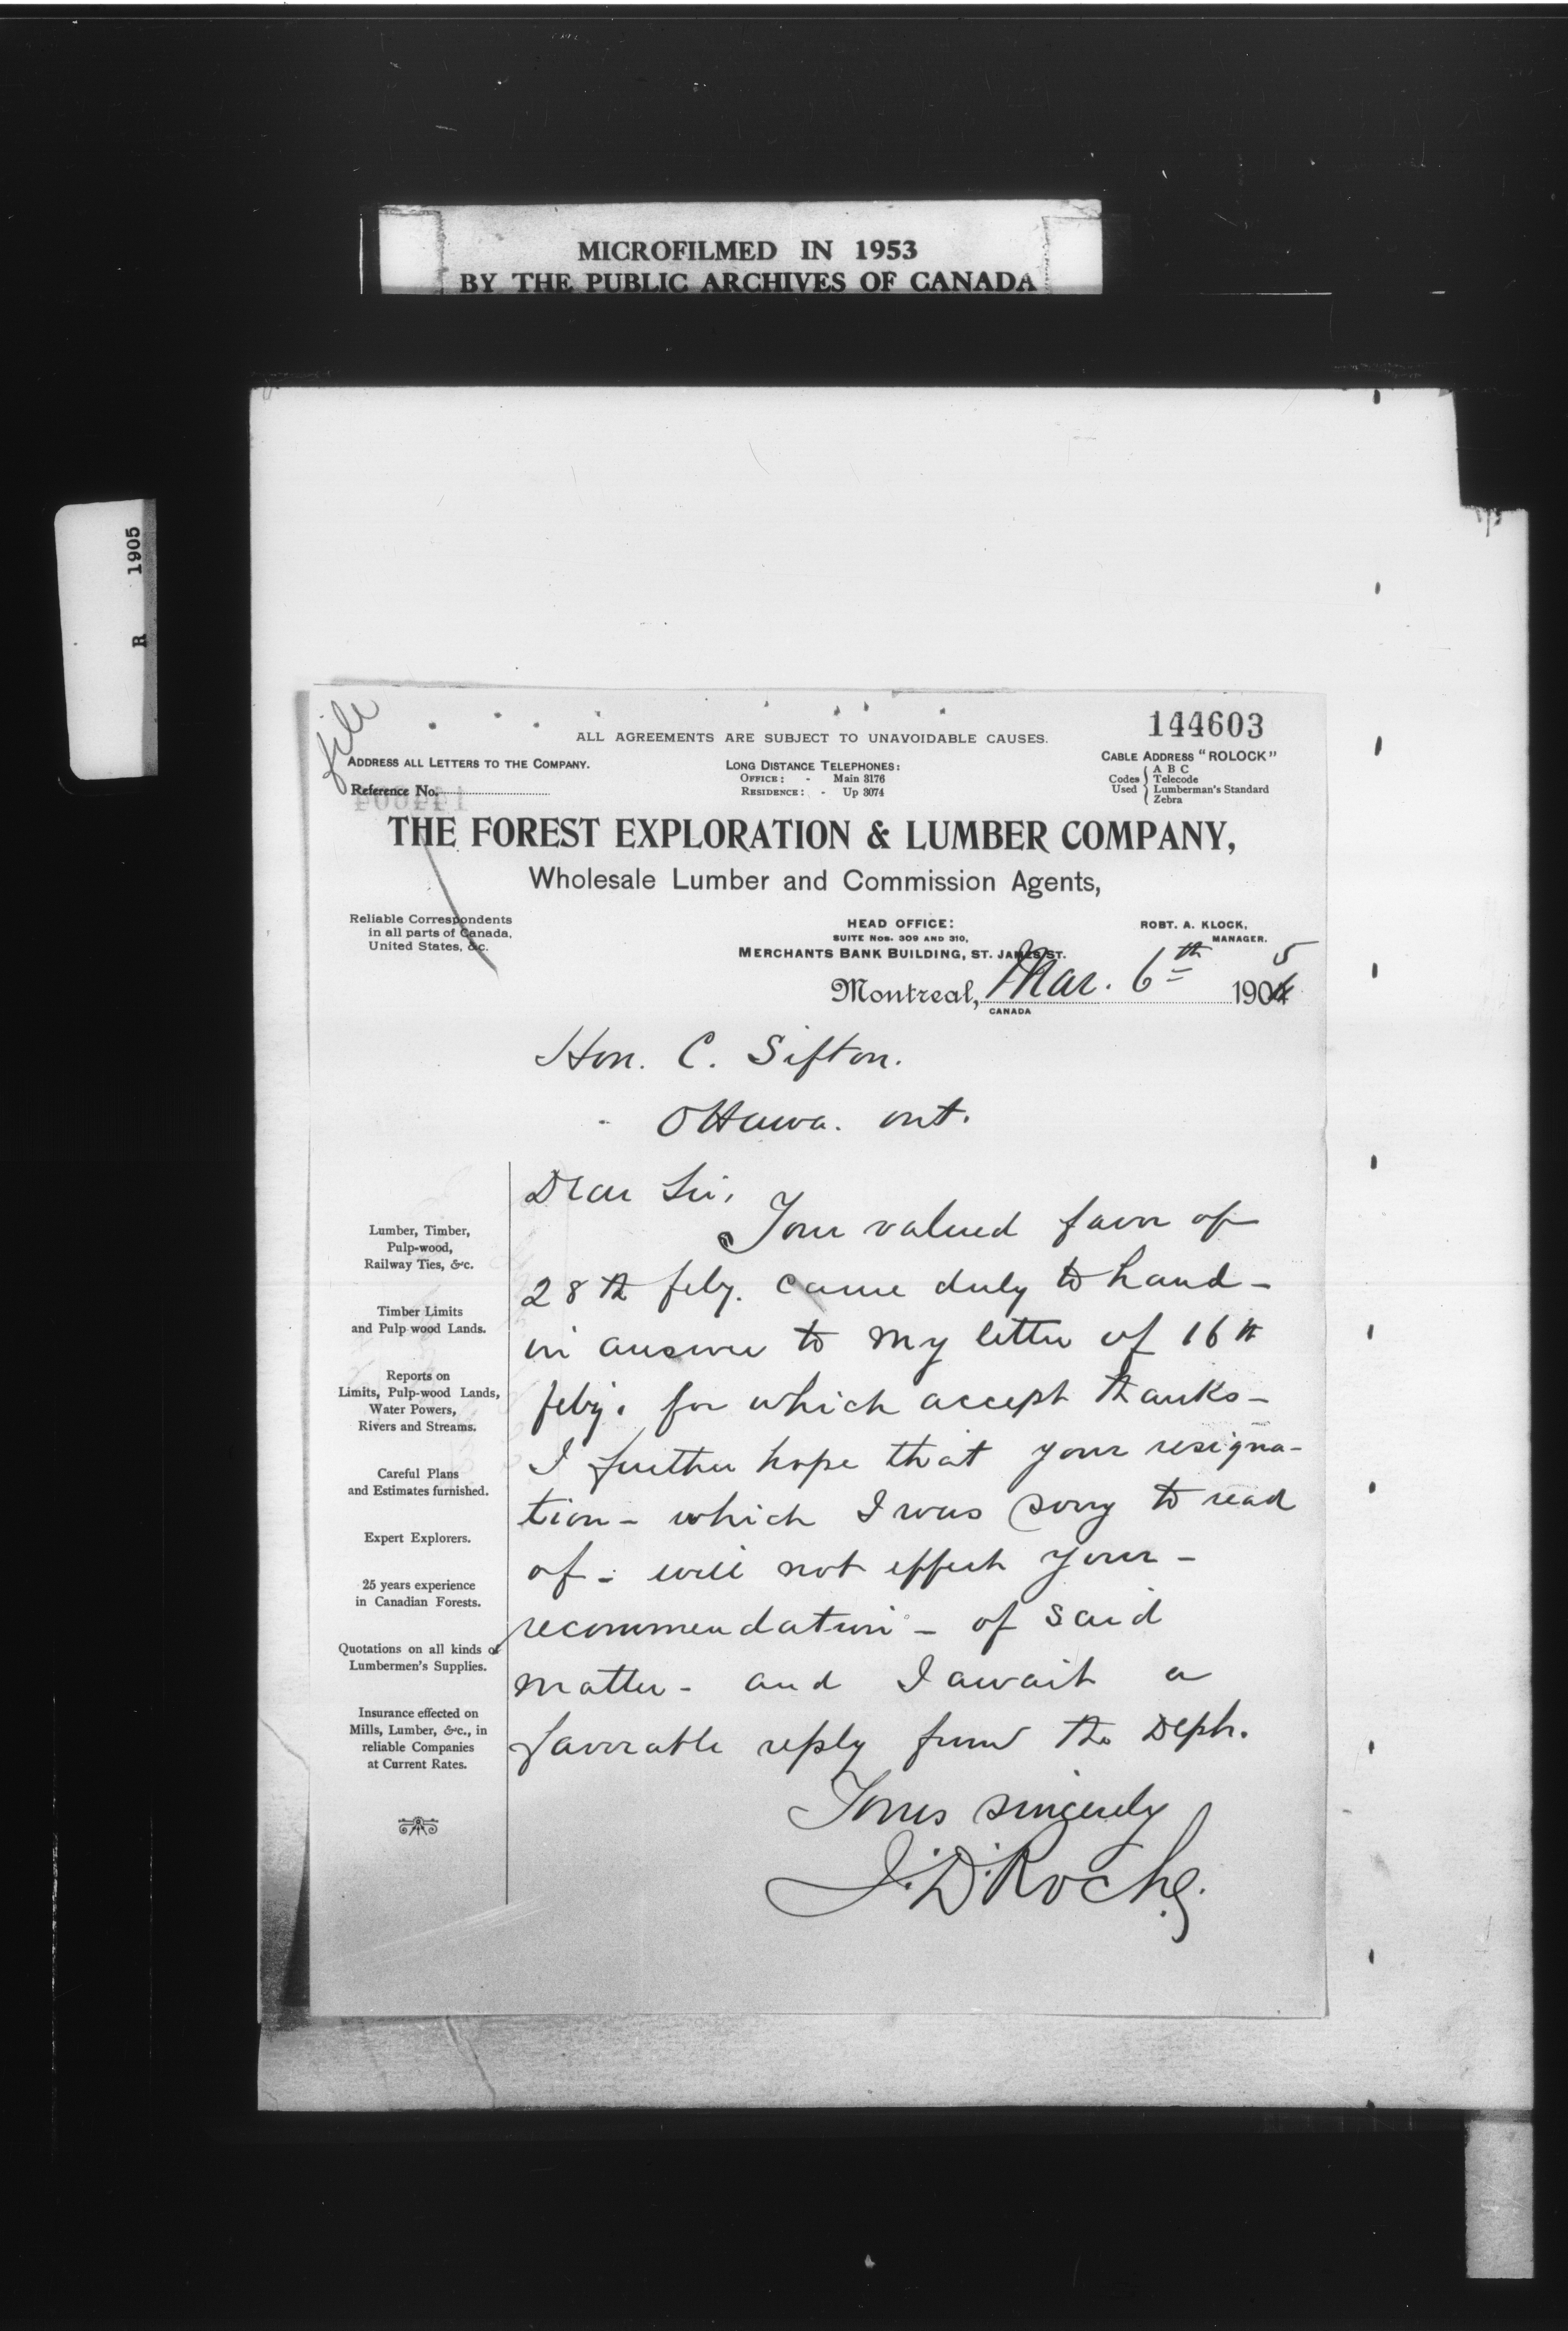 MICROFILMED IN 1953
BY THE PUBLIC ARCHIVES OF CANADA
R 1905
file
144603
ALL AGREEMENTS ARE SUBJECT TO UNAVOIDABLE CAUSES.
ADDRESS ALL LETTERS TO THE COMPANY.
Reference No.
LONG DISTANCE TELEPHONES:
OFFICE: - Main 3176
RESIDENCE: - Up 3074
CABLE ADDRESS "ROLOCK"
Codes Used { A B C
Telecode
Lumberman's Standard
Zebra
THE FOREST EXPLORATION & LUMBER COMPANY,
Wholesale Lumber and Commission Agents,
Reliable Correspondents
in all parts of Canada,
United States, &c.
HEAD OFFICE:
SUITE Nos. 309 AND 310,
MERCHANTS BANK BUILDING, ST. JAMES ST.
ROBT. A. KLOCK,
MANAGER.
Montreal, Mar. 6th 1905
CANADA
Hon. C. Sifton.
Ottawa. ont.
Dear Sir,
Your valued favor of
28th feby. came duly to hand -
in answer to my letter of 16th
feby. for which accept thanks -
I further hope that your resigna-
tion - which I was sorry to read
of - will not effect your -
recommendation - of said
matter - and I await a
favorable reply from the Dept.
Yours sincerely
J. D. Roche.
Lumber, Timber,
Pulp-wood,
Railway Ties, &c.
Timber Limits
and Pulp wood Lands.
Reports on
Limits, Pulp-wood Lands,
Water Powers,
Rivers and Streams.
Careful Plans
and Estimates furnished.
Expert Explorers.
25 years experience
in Canadian Forests.
Quotations on all kinds of
Lumbermen's Supplies.
Insurance effected on
Mills, Lumber, &c., in
reliable Companies
at Current Rates.